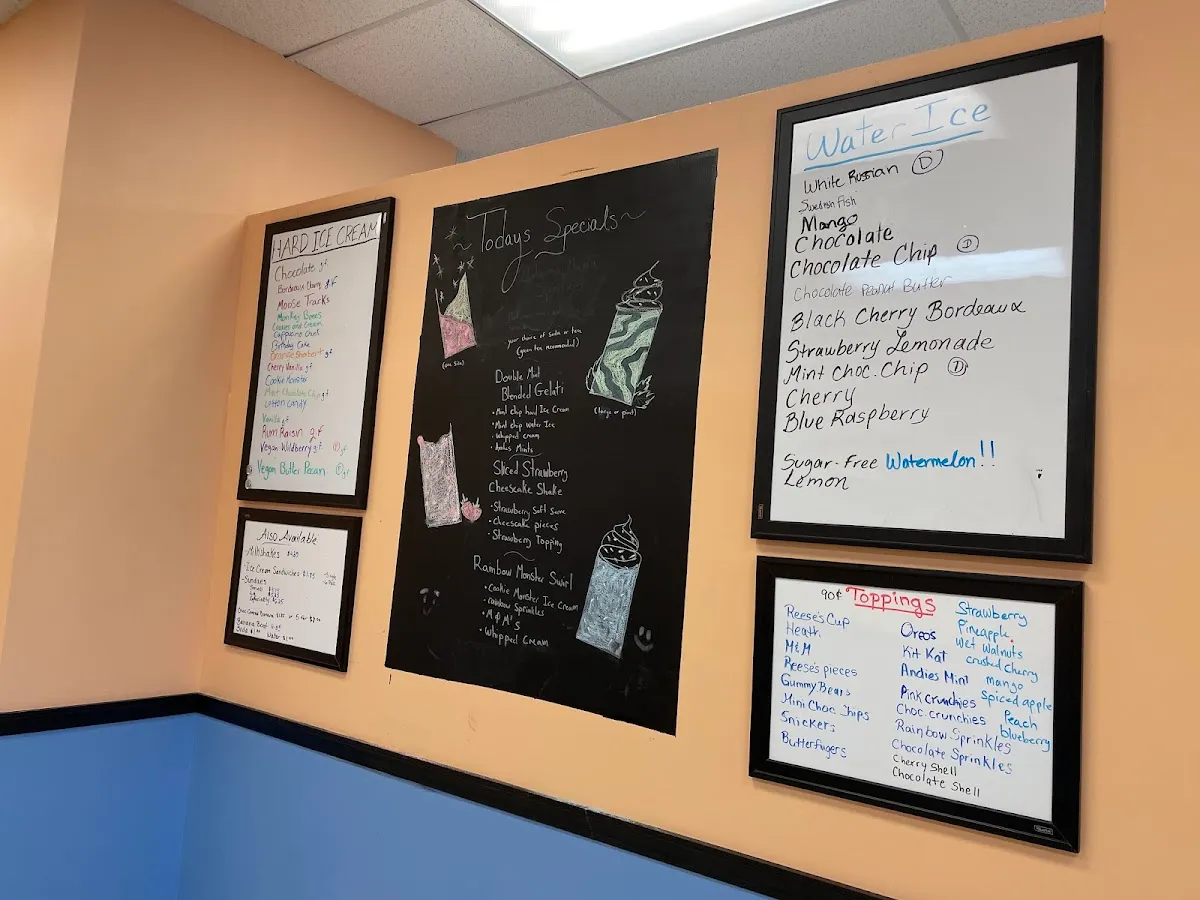 HARD ICE CREAM
Chocolate gf
Bordeaux Cherry g.f
Moose Tracks
Monkey Bones
Cookies and Cream
Cappuccino Chunk
Birthday Cake
Orange Sherbert gf
Cherry Vanilla gf
Cookie Monster
Mint Chocolate Chip gf
Cotton Candy
Vanilla gf
Rum Raisin g.f
Vegan Wildberry gf
Vegan Butter Pecan
Also Available
-Milkshakes
-Ice Cream Sandwiches
-Sundaes
Small
Banana Boat
Water $1.00
~Todays Specials~
your choice of soda or tea
(green tea recommended)
Double Mint
Blended Gelati
(large or pint)
• Mint chip hard Ice Cream
• Mint chip water Ice
• Whipped cream
• Andes Mints
Sliced Strawberry
Cheescake Shake
• Strawberry Soft Serve
• Cheescake pieces
• Strawberry Topping
Rainbow Monster Swirl
• Cookie Monster Ice Cream
• rainbow Sprinkles
• M & M's
• Whipped Cream
Water Ice
White Russian D
Swedish Fish
Mango
Chocolate
Chocolate Chip D
Chocolate Peanut Butter
Black Cherry Bordeaux
Strawberry Lemonade
Mint Choc. Chip D
Cherry
Blue Raspberry
Sugar-Free Watermelon!!
Lemon
90¢ Toppings
Reese's Cup
Heath
M&M
Reese's pieces
Gummy Bears
Mini Choc. Chips
Snickers
Butterfingers
Oreos
Kit Kat
Andies Mint
Pink crunchies
Choc. crunchies
Rainbow Sprinkles
Chocolate Sprinkles
Cherry Shell
Chocolate Shell
Strawberry
Pineapple
Wet Walnuts
crushed cherry
mango
Spiced apple
Peach
blueberry